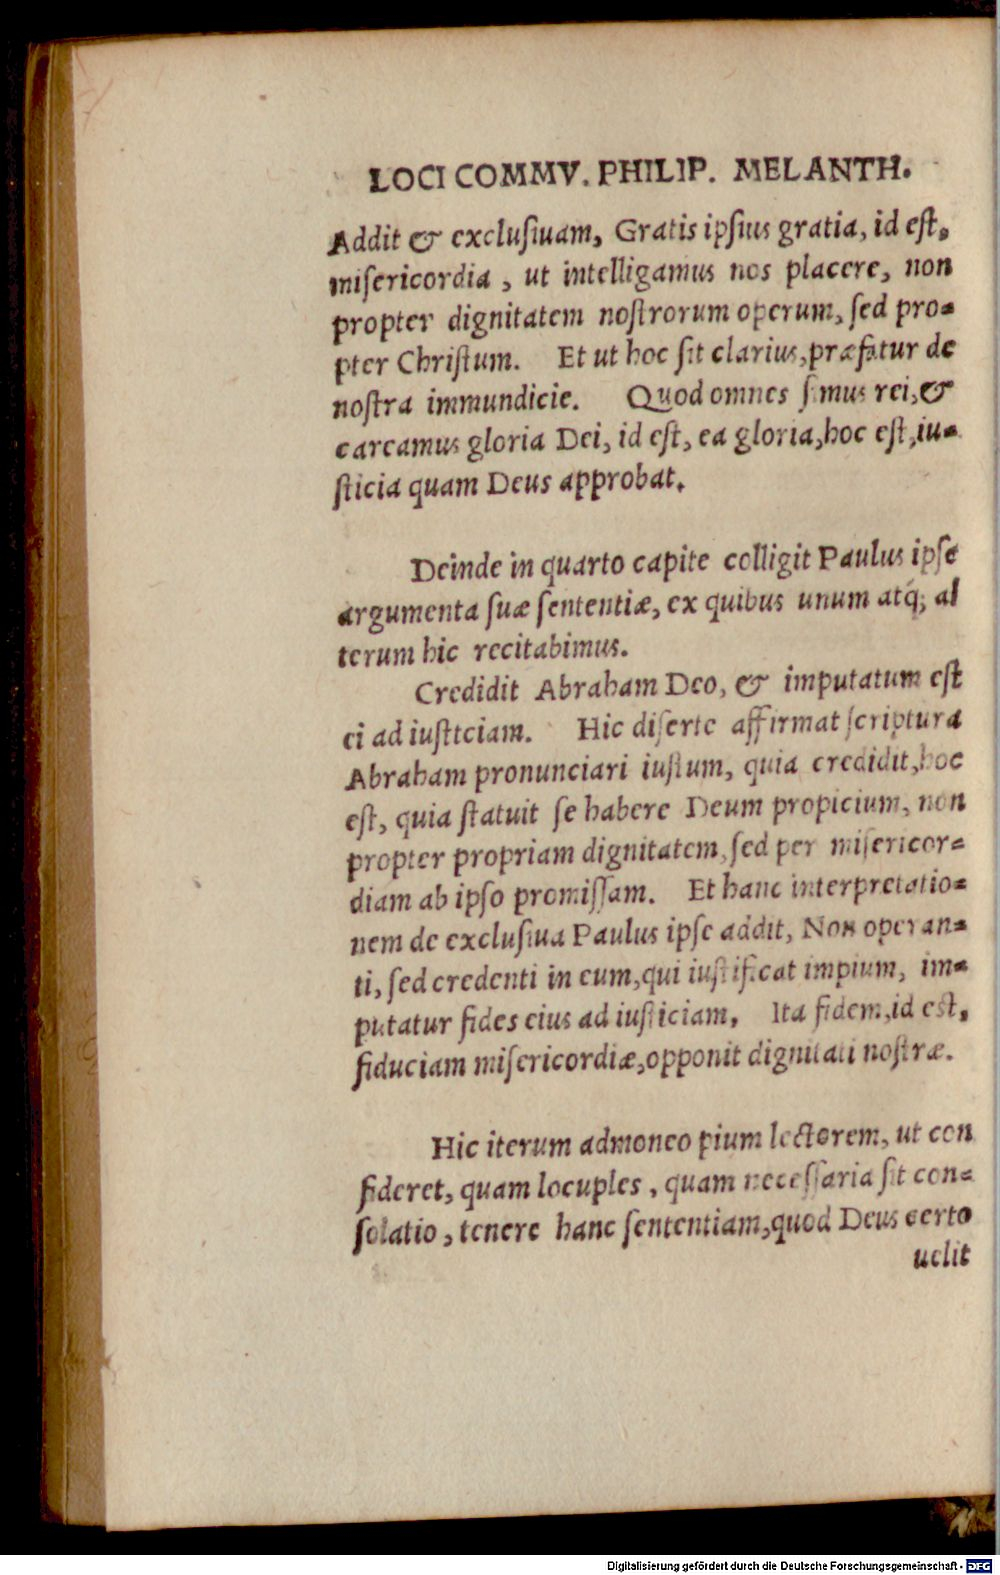 LOCI COMMV. PHILIP. MELANTH.
Addit & exclusiuam, Gratis ipsius gratia, id est,
misericordia , ut intelligamus nos placere, non
propter dignitatem nostrorum operum, sed pro-
pter Christum. Et ut hoc sit clarius, præfatur de
nostra immundicie. Quod omnes simus rei, &
careamus gloria Dei, id est, ea gloria, hoc est, iu-
sticia quam Deus approbat.
Deinde in quarto capite colligit Paulus ipse
argumenta suæ sententiæ, ex quibus unum atq́; al
terum hic recitabimus.
Credidit Abraham Deo, & imputatum est
ei ad iustteiam. Hic diserte affirmat scriptura
Abraham pronunciari iustum, quia credidit, hoc
est, quia statuit se habere Deum propicium, non
propter propriam dignitatem, sed per misericor-
diam ab ipso promissam. Et hanc interpretatio-
nem de exclusiua Paulus ipse addit, Non operan-
ti, sed credenti in eum, qui iustificat impium, im-
putatur fides eius ad iusticiam, Ita fidem, id est,
fiduciam misericordiæ, opponit dignitati nostræ.
Hic iterum admoneo pium lectorem, ut con
fideret, quam locuples , quam necessaria sit con-
solatio , tenere hanc sententiam, quod Deus certo
uelit
Digitalisierung gefördert durch die Deutsche Forschungsgemeinschaft - DFG